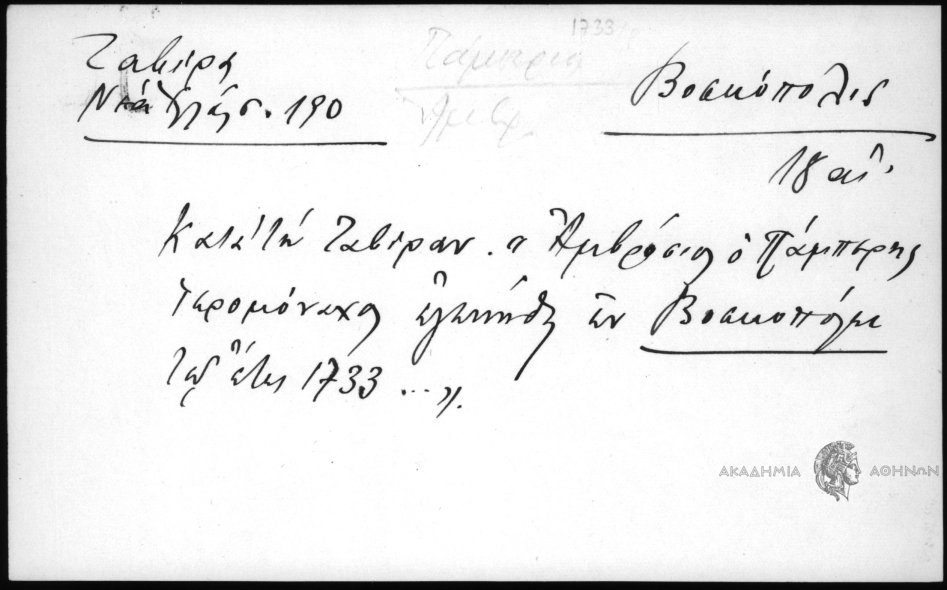 1733
Ζαβίρα
Πάμπερις
Νέα Ἑλλάς. 190
Ἀμβρ.
Βοσκόπολις
18 αἰ.
Κατὰ τὸν Ζαβίραν. "Ἀμβρόσιος ὁ Πάμπερης
Ἱερομόναχος ἐγεννήθη ἐν Βοσκοπόλει
τῷ ἔτει 1733 ...".
ΑΚΑΔΗΜΙΑ ΑΘΗΝΩΝ